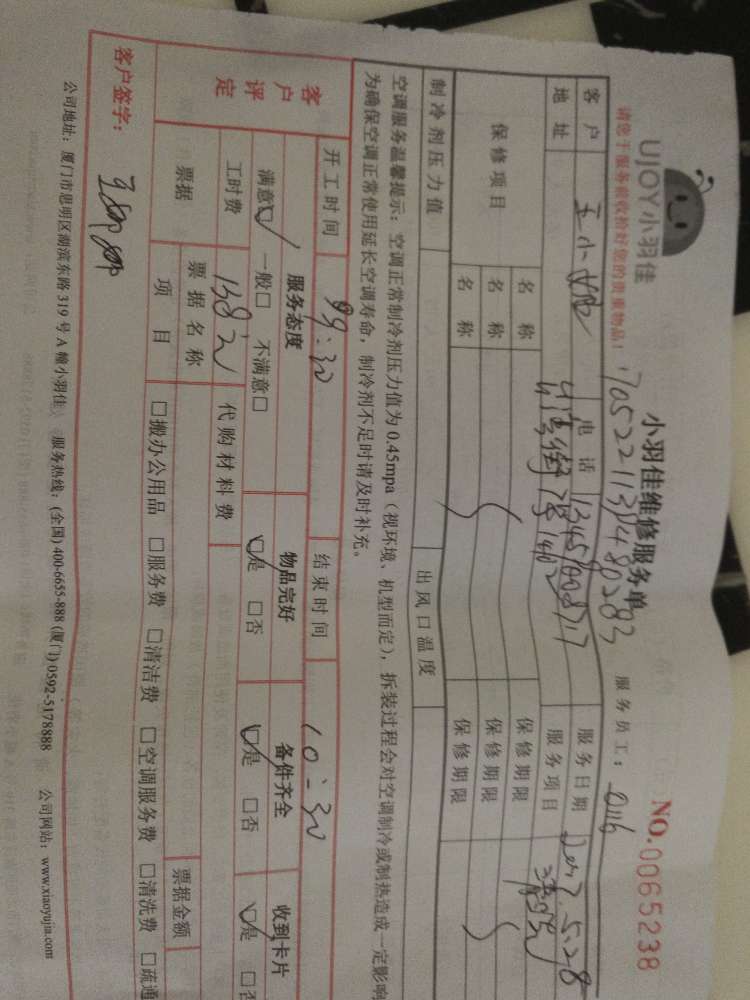 UJOY小羽佳
小羽佳维修服务单
NO.0065238
请您于服务前收拾好您的贵重物品！
服务员工：
客户 电话 服务日期 2017.5.28
地址 服务项目
保修项目 名称 保修期限
名称 保修期限
名称 保修期限
制冷剂压力值 出风口温度
空调服务温馨提示：空调正常制冷剂压力值为0.45mpa（视环境、机型而定），拆装过程会对空调制冷或制热造成一定影响
为确保空调正常使用延长空调寿命，制冷剂不足时请及时补充。
开工时间 结束时间 10:30
客户评定 服务态度 物品完好 备件齐全 收到卡片
满意☑ 一般□ 不满意□ ☑是 □否 ☑是 □否 ☑是
工时费 代购材料费
票据 票据名称 票据金额
项目 □搬办公用品 □服务费 □清洁费 □空调服务费 □清洗费 □疏通
客户签字：
公司地址：厦门市思明区湖滨东路319号A幢小羽佳 服务热线：(全国) 400-6655-888 (厦门) 0592-5178888 公司网站：www.xiaoyujia.com